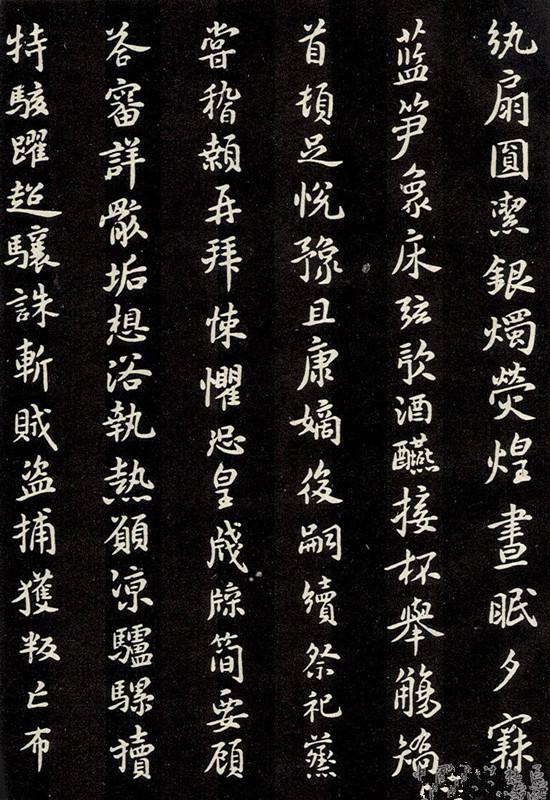 紈扇圓潔銀燭熒煌晝眠夕寐
藍笋象床弦歌酒醼接杯舉觴矯
首頓足悅豫且康嫡後嗣續祭祀蒸
嘗稽顙再拜悚懼恐皇牋牒簡要顧
答審詳骸垢想浴執熱願凉驢騾犢
特駭躍超驤誅斬賊盜捕獲叛亡布